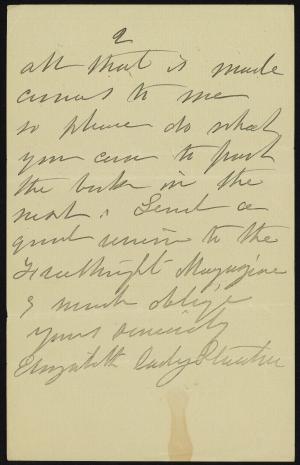 2
all that is made
comes to me
so please do what
you can to push
the book in the
next. Send a
good review to the
Freethought Magazine
& much oblige
yours sincerely
Elizabeth Cady Stanton